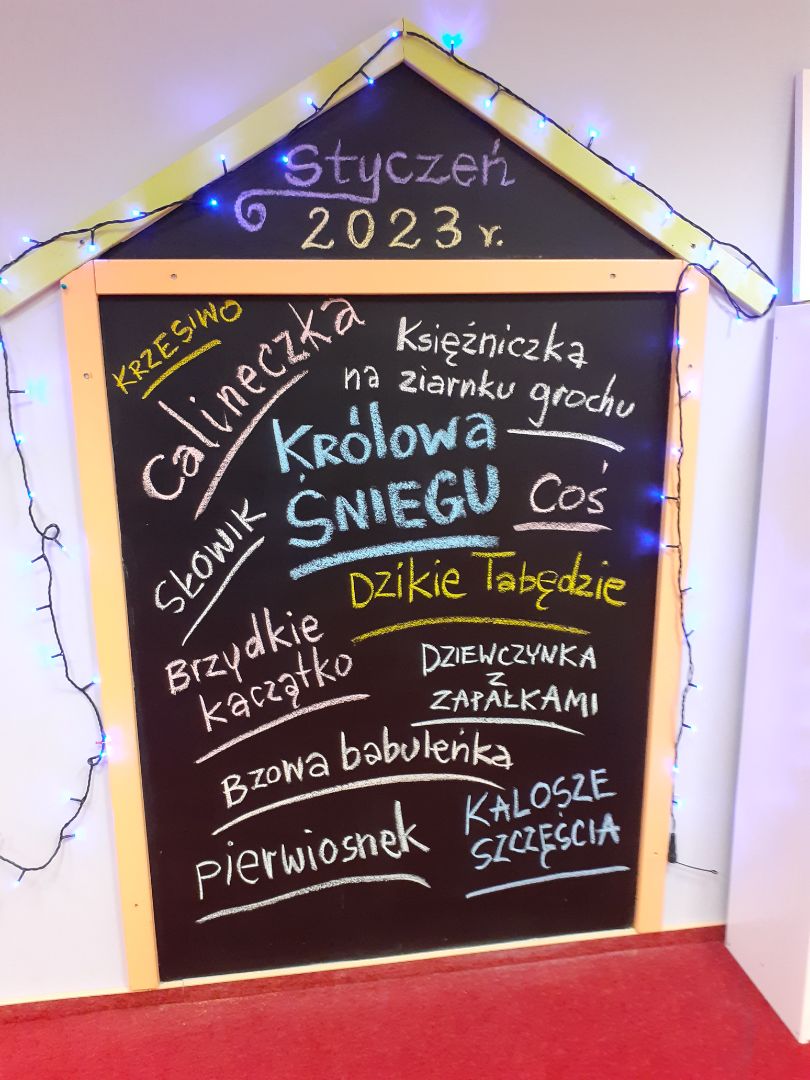 Styczeń
2023 r.
KRZESIWO
Calineczka
Księżniczka
na ziarnku grochu
Królowa
ŚNIEGU
Coś
Słowik
Dzikie Łabędzie
Brzydkie
kaczątko
DZIEWCZYNKA
Z
ZAPAŁKAMI
Bzowa babuleńka
pierwiosnek
KALOSZE
SZCZĘŚCIA